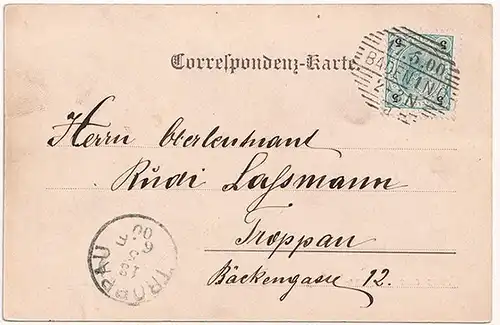 Correspondenz-Karte.
5.00
BADEN 1 N.Ö.
Herrn Oberleutnant
Rudi Lassmann
Troppau
Bäckengasse 12.
TROPPAU
18
5
00